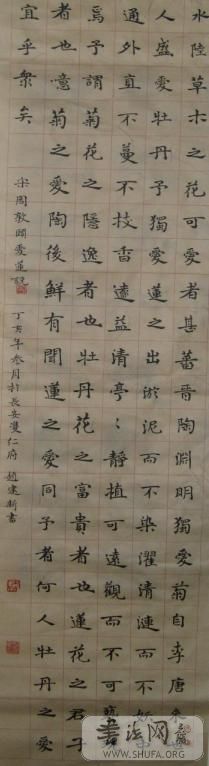 水陸草木之花可愛者甚蕃晉陶淵明獨愛菊自李唐來
人盛愛牡丹予獨愛蓮之出淤泥而不染濯清漣而不妖
通外直不蔓不枝香遠益清亭〻靜植可遠觀而不可
焉予謂菊花之隱逸者也牡丹花之富貴者也蓮花之君子
者也噫菊之愛陶後鮮有聞蓮之愛同予者何人牡丹之愛
宜乎衆矣
宋周敦頤愛蓮說 丁亥年叁月於長安雙仁府 趙建新書
書法网
WWW.SHUFA.ORG